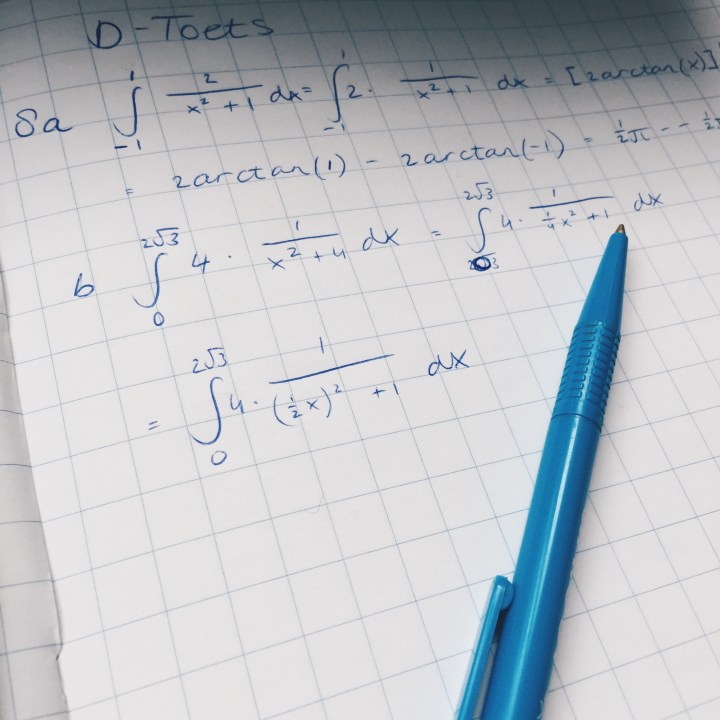 D-Toets
8a ∫₋₁¹ 2/(x² + 1) dx = ∫₋₁¹ 2 · 1/(x² + 1) dx = [2arctan(x)]
= 2arctan(1) - 2arctan(-1) = ½π - - ½
b ∫₀^(2√3) 4 · 1/(x² + 4) dx = ∫₀^(2√3) 4 · 1/(¼x² + 1) dx
= ∫₀^(2√3) 4 · 1/((½x)² + 1) dx